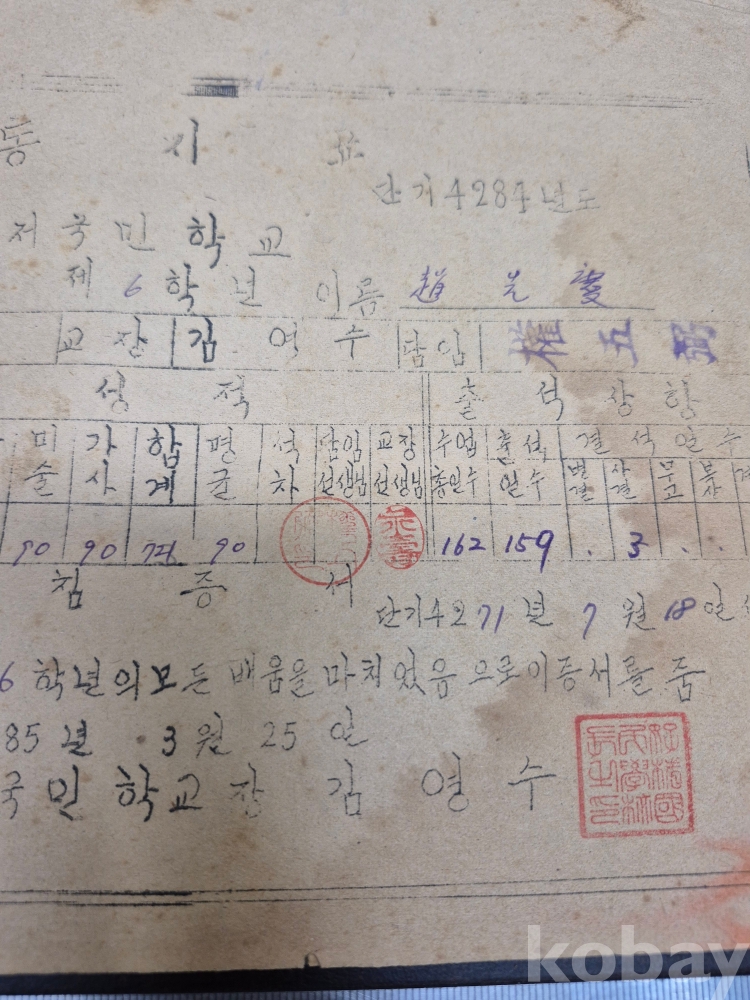 동 시 표
단기4284년도
저국민학교
제 6학년 이름 趙 光 變
교장 김영수 담임 權五弼
성적 출석상항
미술 가사 합계 평균 석차 담임선생님 교장선생님 수업총일수 출석일수 결석일수
병결 사결 무고
90 90 90 162 159 . 3 . .
단기4271년 7월 18일
6학년의모든 배움을 마치였음으로이증서를 줌
85년 3월 25일
국민학교장 김영수
kobay